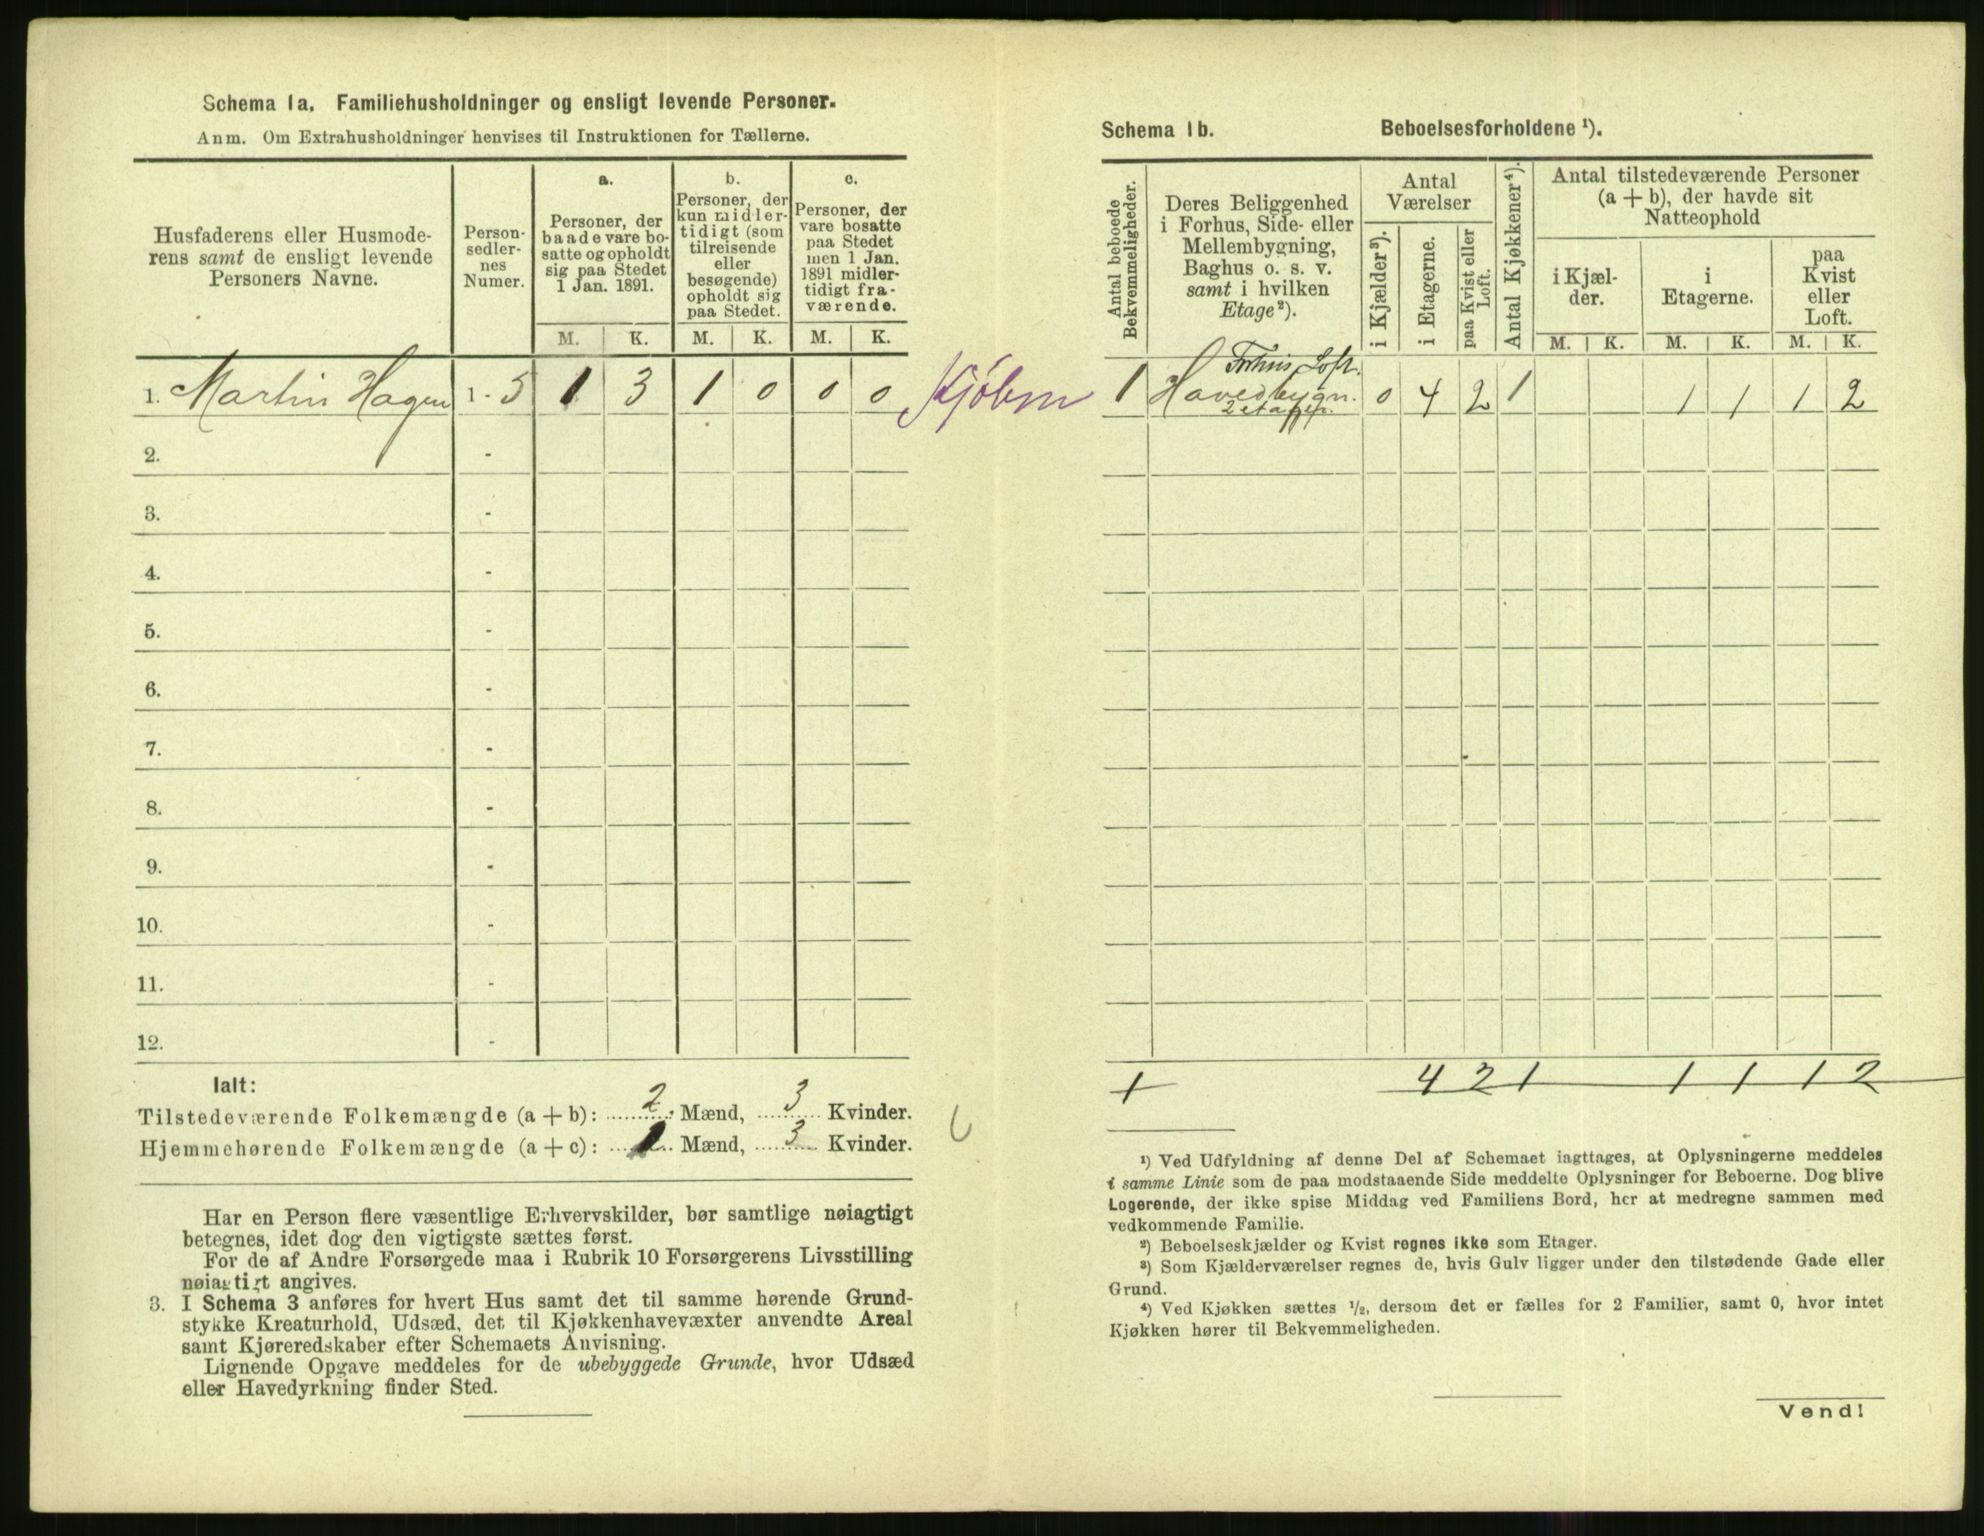 Schema 1a. Familiehusholdninger og ensligt levende Personer.
Anm. Om Extrahusholdninger henvises til Instruktionen for Tællerne.
Husfaderens eller Husmode-
rens samt de ensligt levende
Personers Navne.
Person-
sedler-
nes
Numer.
a.
Personer, der
baade vare bo-
satte og opholdt
sig paa Stedet
1 Jan. 1891.
b.
Personer, der
kun midler-
tidigt (som
tilreisende
eller
besøgende)
opholdt sig
paa Stedet.
c.
Personer, der
vare bosatte
paa Stedet
men 1 Jan.
1891 midler-
tidigt fra-
værende.
M. K. M. K. M. K.
1. Martin Hagen 1 - 5 1 3 1 0 0 0
2. -
3. -
4. -
5. -
6. -
7. -
8. -
9. -
10. -
11. -
12. -
Ialt:
Tilstedeværende Folkemængde (a + b): 2 Mænd, 3 Kvinder.
Hjemmehørende Folkemængde (a + c): 1 Mænd, 3 Kvinder.
Har en Person flere væsentlige Erhvervskilder, bør samtlige nøiagtigt
betegnes, idet dog den vigtigste sættes først.
For de af Andre Forsørgede maa i Rubrik 10 Forsørgerens Livsstilling
nøiagtigt angives.
3. I Schema 3 anføres for hvert Hus samt det til samme hørende Grund-
stykke Kreaturhold, Udsæd, det til Kjøkkenhavevæxter anvendte Areal
samt Kjøreredskaber efter Schemaets Anvisning.
Lignende Opgave meddeles for de ubebyggede Grunde, hvor Udsæd
eller Havedyrkning finder Sted.
Kjøbm
6
Schema 1b. Beboelsesforholdene ¹).
Antal beboede
Bekvemmeligheder.
Deres Beliggenhed
i Forhus, Side- eller
Mellembygning,
Baghus o. s. v.
samt i hvilken
Etage²).
Antal
Værelser
i Kjælder³).
i Etagerne.
paa Kvist eller
Loft.
Antal Kjøkkener⁴).
Antal tilstedeværende Personer
(a + b), der havde sit
Natteophold
i Kjæl-
der.
i
Etagerne.
paa
Kvist
eller
Loft.
M. K. M. K. M. K.
Forhus Loft.
1 Hovedbygn. 0 4 2 1 1 1 1 2
2 etager.
1 4 2 1 1 1 1 2
¹) Ved Udfyldning af denne Del af Schemaet iagttages, at Oplysningerne meddeles
i samme Linie som de paa modstaaende Side meddelte Oplysninger for Beboerne. Dog blive
Logerende, der ikke spise Middag ved Familiens Bord, her at medregne sammen med
vedkommende Familie.
²) Beboelseskjælder og Kvist regnes ikke som Etager.
³) Som Kjælderværelser regnes de, hvis Gulv ligger under den tilstødende Gade eller
Grund.
⁴) Ved Kjøkken sættes ¹/₂, dersom det er fælles for 2 Familier, samt 0, hvor intet
Kjøkken hører til Bekvemmeligheden.
Vend!